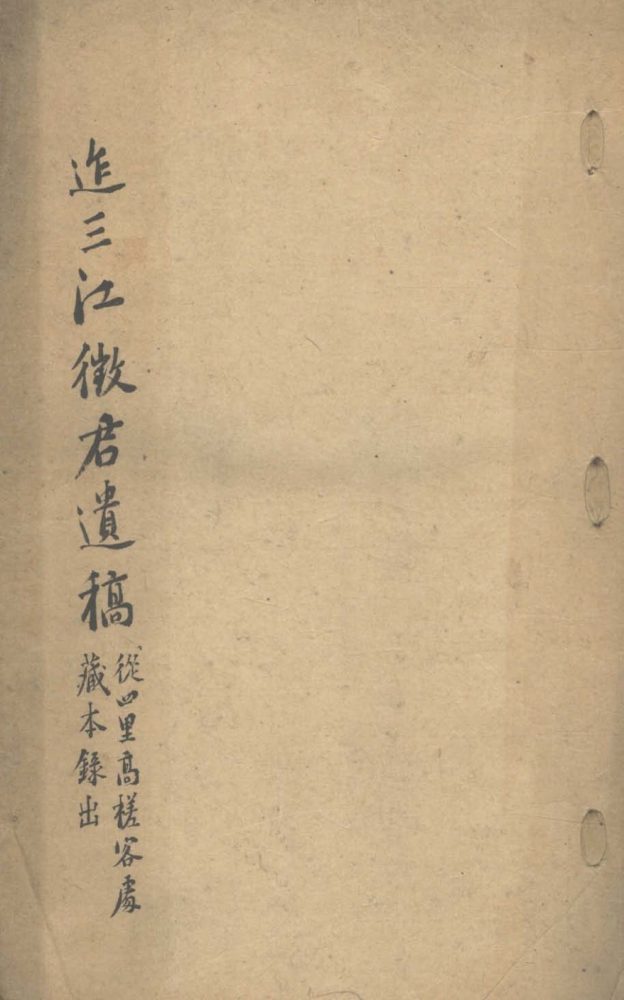 迮三江徵君遺稿
從四里高槎客處
藏本錄出